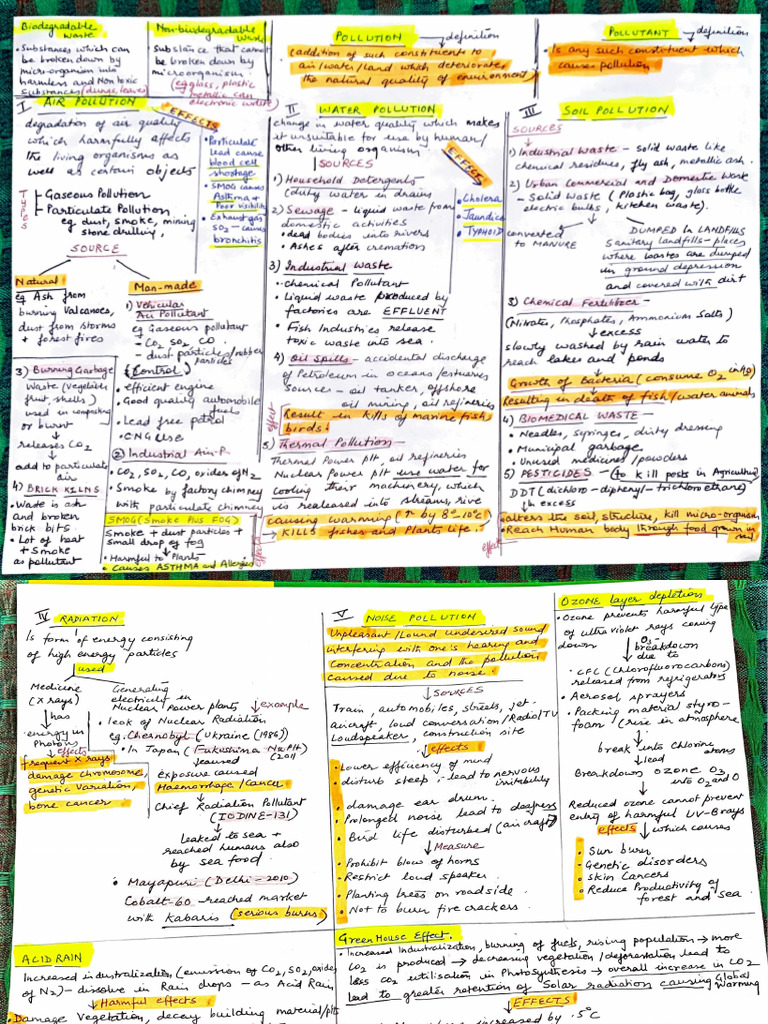 Biodegradable
Waste
• Substances which can
be broken down by
micro-organism into
harmless and Non toxic
Substances (dung, leaves)
Non-biodegradable
Waste
Substance that cannot
be broken down by
microorganism.
(eg glass, plastic
metallic can,
electronic waste)
POLLUTION → definition
(addition of such constituents to
air/water/land which deteriorates
the natural quality of environment)
POLLUTANT → definition
• Is any such constituent which
causes pollution
I AIR POLLUTION
degradation of air quality
which harmfully affects
the living organisms as
well as certain objects
TYPES
Gaseous Pollution
Particulate Pollution
eg. dust, smoke, mining
stone drilling,
EFFECTS
• Particulate
lead cause
blood cell
shostage
• SMOG causes
Asthma +
Poor visibility
• Exhaust gas
SO2 - causes
bronchitis
SOURCE
Natural
eg Ash from
burning Valcanoes,
dust from storms
+ forest fires
Man-made
1) Vehicular
Air Pollutant
eg Gaseous pollutant
- CO2, SO2, CO.
- dust particles/rubber
particles
(Control)
• efficient engine
• Good quality automobile
fuel
• Lead free petrol
• CNG Use
2) Industrial Air-P.
• CO2, SO2, CO, oxides of N2
• Smoke by factory chimney
with particulate chimney
3) Burning Garbage
Waste (vegetables
fruit, shells)
used in composting
or burnt
releases CO2
add to particulate
air
4) BRICK KILNS
• Waste is ash
and broken
brick bits.
• Lot of heat
+ smoke
as pollutant
SMOG (Smoke plus FOG)
Smoke + dust particles +
small drop of fog
• Harmful to Plants
• Causes ASTHMA and Allergies
II WATER POLLUTION
change in water quality which makes
it unsuitable for use by human/
other living organism
SOURCES
1) Household Detergents-
(duty water in drains)
2) Sewage - liquid waste from
domestic activities
• dead bodies into rivers
• Ashes after cremations
EFFECTS
• Cholera
• Jaundice
• TYPHOID
3) Industrial Waste
• chemical Pollutant
• Liquid waste produced by
factories are EFFLUENT
• Fish Industries release
toxic waste into sea.
4) Oil Spills - accidental discharge
of Petroleum in oceans/estuaries
Sources - oil tanker, offshore
oil mining, oil refineries
effect
Result in kills of marine fish,
birds!
5) Thermal Pollution -
Thermal Power plt, oil refineries
Nuclear Power plt use water for
cooling their machinery, which
is realeased into streams, rive
effect
causing warming (↑ by 8°-10°C
→ KILLS fishes and Plants life.
III SOIL POLLUTION
SOURCES
1) Industrial Waste - solid waste like
chemical residues, fly ash, metallic ash.
2) Urban Commercial and Domestic Waste
- Solid waste (Plastic bag, glass bottle
electric bulbs, kitchen waste).
converted
to MANURE
DUMPED IN LANDFILLS
Sanitary landfills - places
where wastes are dumped
in ground depression
and covered with dirt
3) Chemical Fertilizer -
(Nitrates, Phosphates, Ammonium Salts)
↓ excess
slowly washed by rain water to
reach lakes and ponds
Growth of Bacteria (consume O2 in H2O)
Resulting in death of fish/water animals
4) BIOMEDICAL WASTE -
• Needles, syringes, dirty dressing
• Municipal garbage,
• Unused medicines/powders
5) PESTICIDES - (to kill pests in Agriculture)
DDT (dichloro-diphenyl-trichloroethane)
↓ In excess
effect
alters the soil, structure, kill micro-organism
• Reach Human body through food grown in
soil
IV RADIATION
Is form of energy consisting
of high energy particles
used
Medicine
(X rays)
has
energy in
Photons
effects
frequent X rays
damage chromosome,
genetic variation,
bone cancer
Generating
electricity in
Nuclear Power plants → example
• leak of Nuclear Radiation
eg. Chernobyl (Ukraine (1986))
• In Japan (Fukushima Nu Plt)
(2011
exposure caused
Haemorrhage/Cancer
Chief Radiation Pollutant
(IODINE-131)
Leaked to sea +
reached humans also
by sea food.
• Mayapuri (Delhi-2010)
Cobalt-60 reached market
with Kabaris (serious burns)
V NOISE POLLUTION
Unpleasant/Lound undesired sound
interfering with one's hearing and
Concentration and the pollution
caused due to noise.
↓ SOURCES
Train, automobiles, streets, jet
aircraft, loud conversation/Radio/TV
Loudspeaker, construction site
↓ effects
• Lower efficiency of mind
• disturb sleep, lead to nervous
irritability
• damage ear drum.
• Prolonged noise lead to deafness
• Bird life disturbed (air craft)
↓ Measure
• Prohibit blow of horns
• Restrict loud speaker
• Planting trees on roadside.
• Not to burn fire crackers.
OZONE layer depletion
• Ozone prevents harmful type
of ultraviolet rays coming
down
O3-
breakdown
due to
• CFC (Chlorofluorocarbons)
released from refrigerators
• Aerosol sprayers
• Packing material styro-
foam (rise in atmosphere
break into Chlorine
atoms
↓ lead
Breakdown OZONE O3
into O2 and O
Reduced ozone cannot prevent
entry of harmful UV-B rays
effects ↓ which causes
• Sun burn
• Genetic disorders
• Skin Cancers
• Reduce Productivity of
forest and sea
ACID RAIN
Increased industralization (emission of CO2, SO2, oxides
of N2) - dissolve in Rain drops - as Acid Rain
↓ Harmful effects
• Damage Vegetation, decay building material/plts
Green House Effect.
• Increased Industralization, burning of fuels, rising population → more
CO2 is produced → decreasing vegetation/deforestation lead to
less CO2 utilisation in Photosynthesis → overall increase in CO2
lead to greater retention of Solar radiation causing Global
Warming
↓ EFFECTS
increased by .5°C